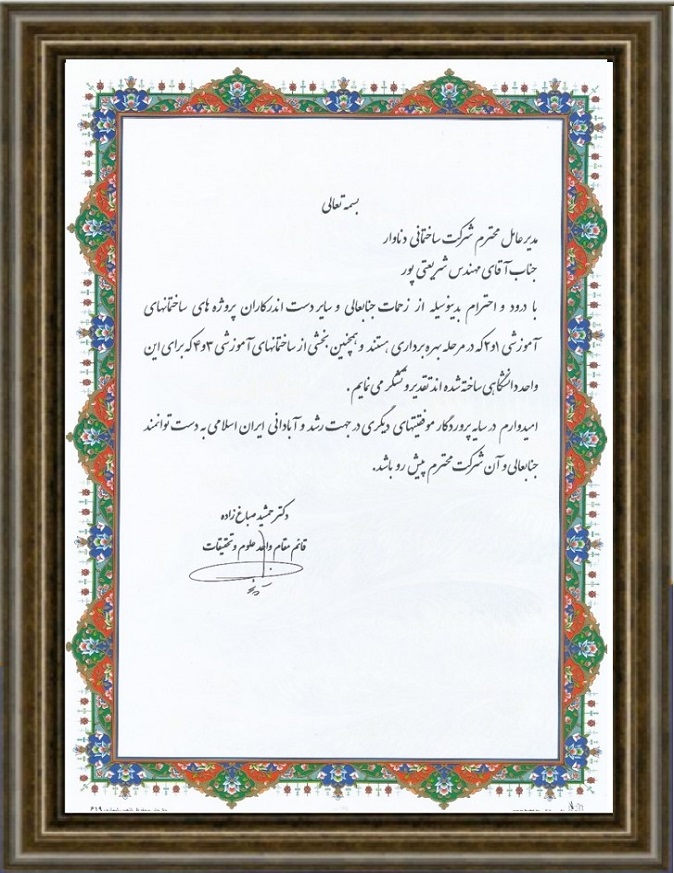 بسمه تعالی
مدیر عامل محترم شرکت ساختمانی دناوار
جناب آقای مهندس شریعتی پور
با درود و احترام بدینوسیله از زحمات جنابعالی و سایر دست اندرکاران پروژه های ساختمانهای
آموزشی ۱و۲ که در مرحله بهره برداری هستند و همچنین بخشی از ساختمانهای آموزشی ۳و۴ که برای این
واحد دانشگاهی ساخته شده اند تقدیر و تشکر می نمایم .
امیدوارم در سایه پروردگار موفقیتهای دیگری در جهت رشد و آبادانی ایران اسلامی به دست توانمند
جنابعالی و آن شرکت محترم پیش رو باشد.
دکتر جمشید صباغ زاده
قائم مقام واحد علوم و تحقیقات